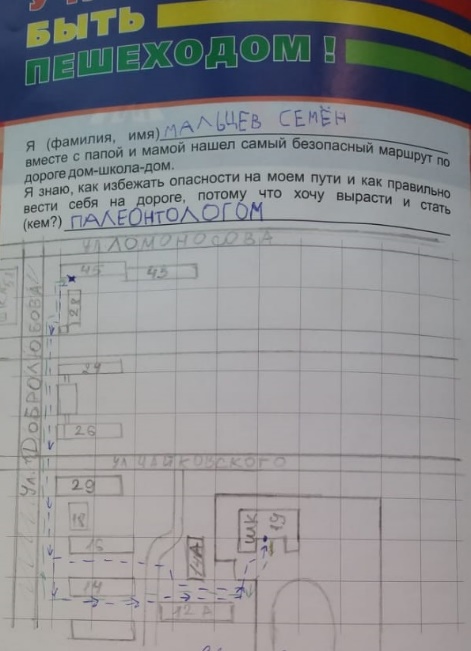 БЫТЬ
ПЕШЕХОДОМ!
Я (фамилия, имя) МАЛЬЦЕВ СЕМЁН
вместе с папой и мамой нашел самый безопасный маршрут по
дороге дом-школа-дом.
Я знаю, как избежать опасности на моем пути и как правильно
вести себя на дороге, потому что хочу вырасти и стать
(кем?) ПАЛЕОНТОЛОГОМ
УЛ ЛОМОНОСОВА
45
43
28
УЛ. ДОБРОЛЮБОВА
24
26
УЛ ЧАЙКОВСКОГО
29
18
16
14А
ШК 19
14
12 А